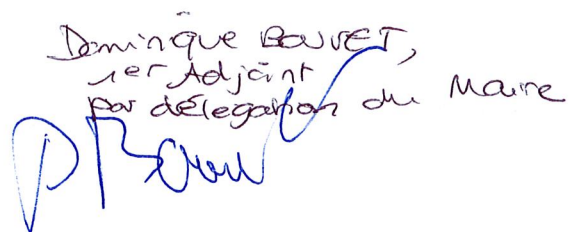 Dominique BOUVET,
1er Adjoint
par délegation du Maire